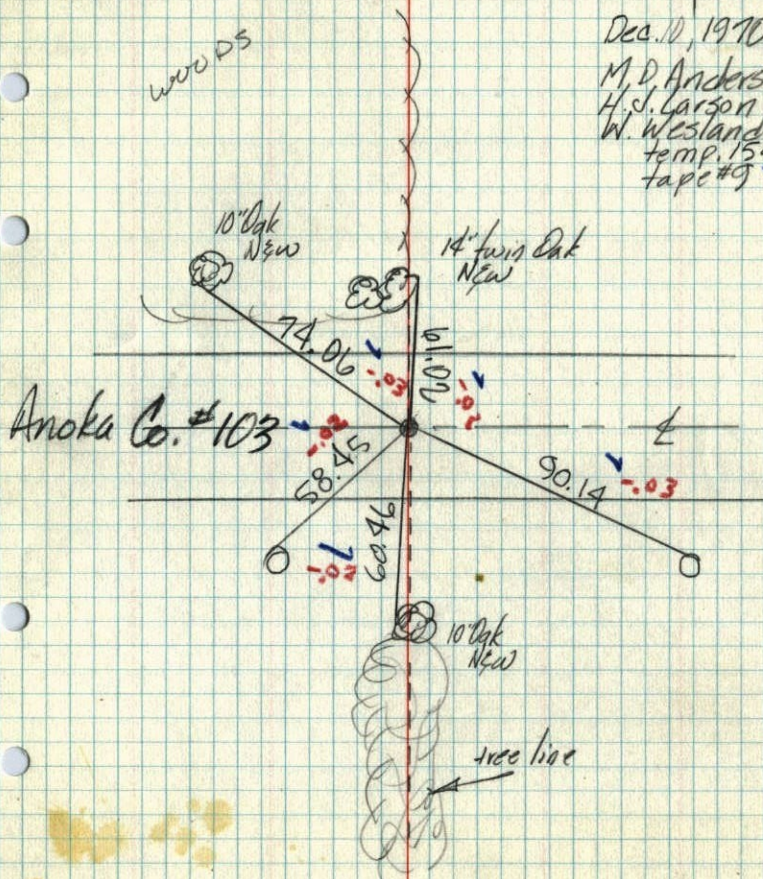 Dec. 10, 1970
M.D. Anders
H.J. Larson
W. Wesland
temp. 15
tape #9
WOODS
10" Oak
N&W
14" twin Oak
N&W
74.06
-.03
61.02
-.02
Anoka Co. #103
-.02
58.45
℄
90.14
-.03
60.46
-.02
10" Oak
N&W
tree line